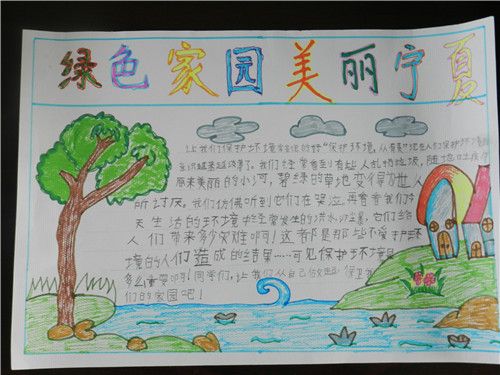 绿色家园美丽宁夏
让我们保护环境 "保护环境,从
意识越来越淡薄了。我们经常看到有些人乱扔垃圾,随地吐痰
原来美丽的小河,碧绿的草地变得为世人
所讨厌,我们仿佛听到他们在哭泣,再看看我们今
天生活的环境中经常发生的洪水沙尘暴,它们给
人们带来多少灾难啊!这都是那些不爱护环
境的人们造成的结果……可见保护环境是
多么重要啊!同学们,让我们从自己做起,保卫我
们的家园吧!